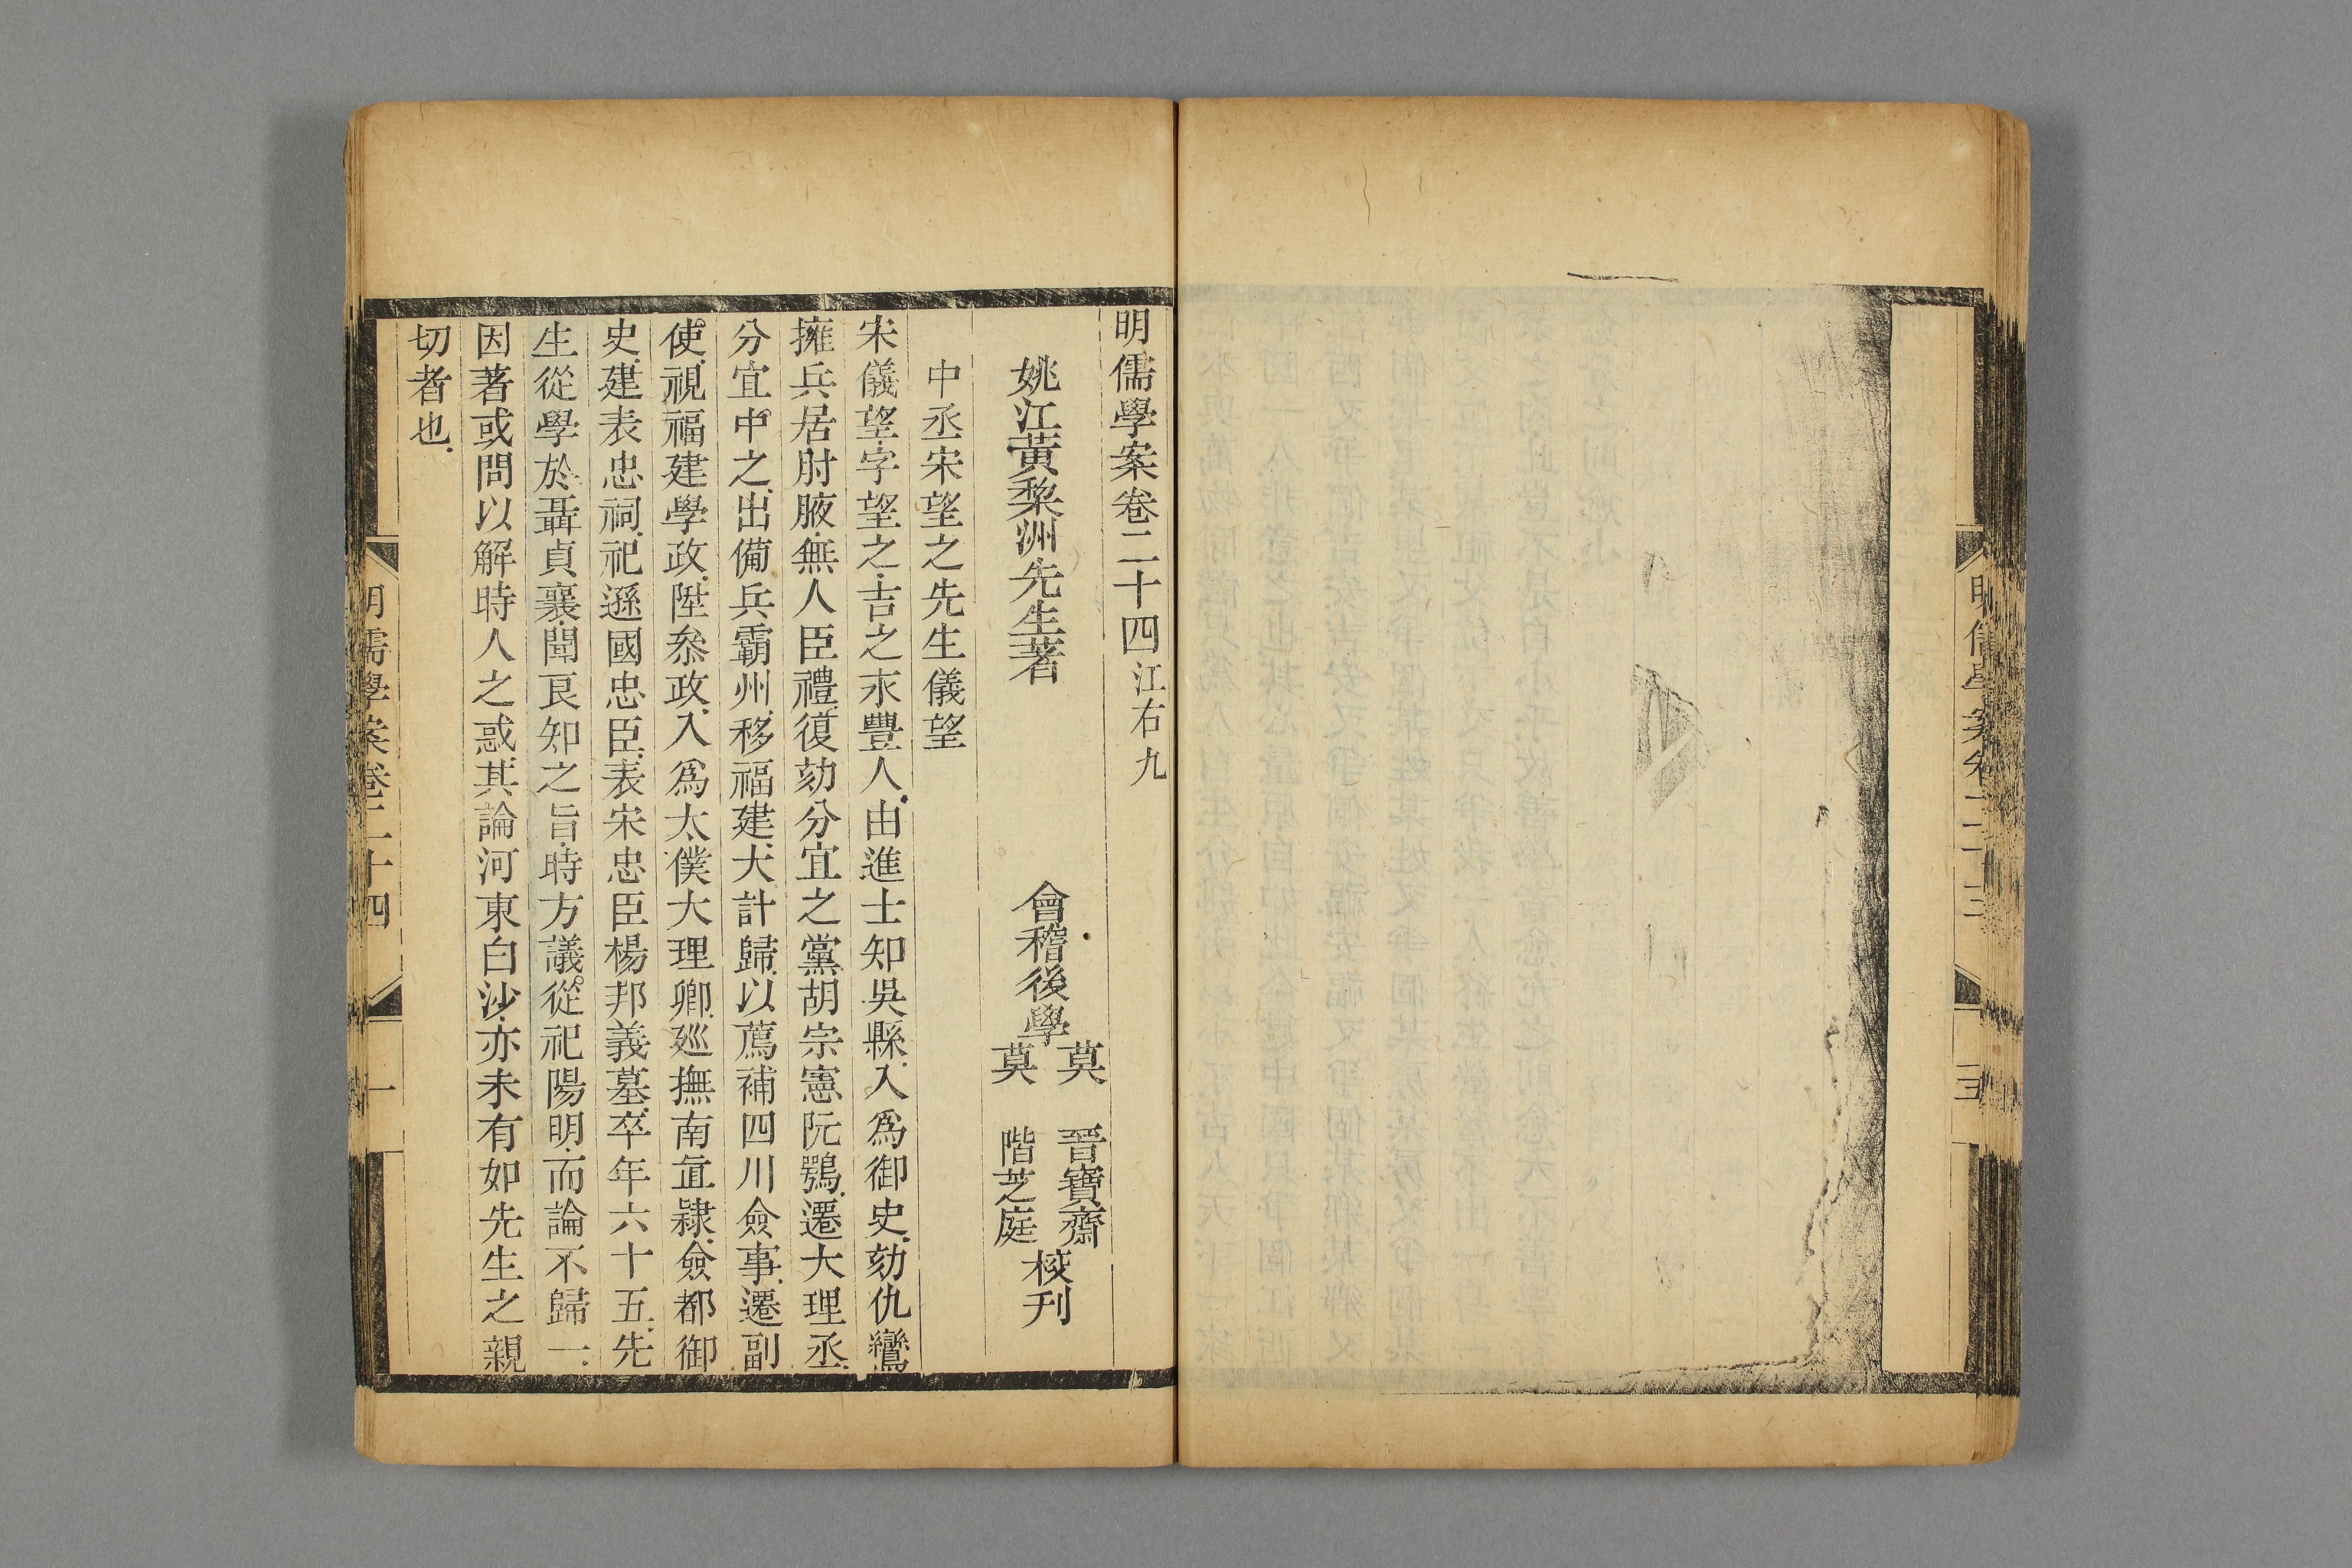 明儒學案卷二十三
明儒學案卷二十四江右九
姚江黃棃洲先生著
會稽後學
莫晉寶齋
莫階芝庭
校刊
中丞宋望之先生儀望
宋儀望字望之吉之永豐人由進士知吳縣入爲御史劾仇鸞
擁兵居肘腋無人臣禮復劾分宜之黨胡宗憲阮鶚遷大理丞
分宜中之出備兵霸州移福建大計歸以薦補四川僉事遷副
使視福建學政陞叅政入爲太僕大理卿廵撫南直隸僉都御
史建表忠祠祀遜國忠臣表宋忠臣楊邦義墓卒年六十五先
生從學於聶貞襄聞良知之旨時方議從祀陽明而論不歸一
因著或問以解時人之惑其論河東白沙亦未有如先生之親
切者也
明儒學案卷二十四
一